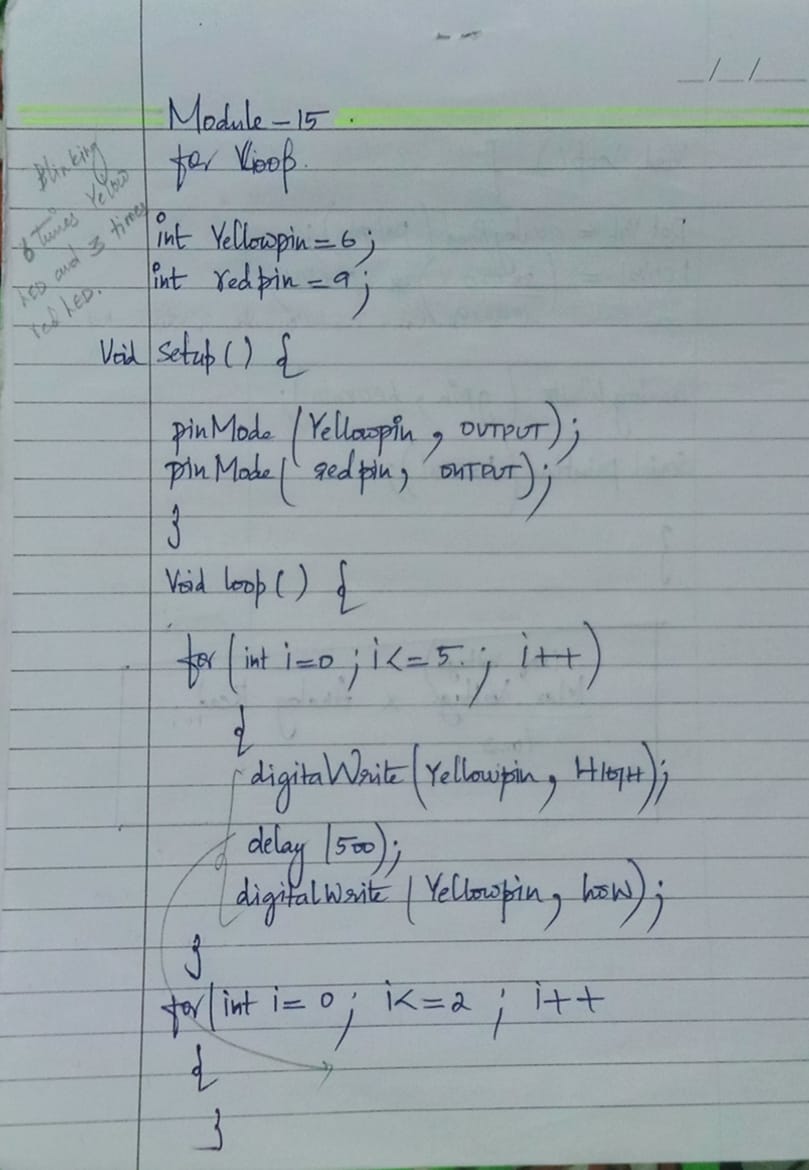 Module - 15.
for loop.
Blinking
6 times Yellow
LED and 3 times
red LED.
int Yellowpin = 6;
int redpin = 9;
Void setup() {
pinMode (Yellowpin, OUTPUT);
pinMode( redpin, OUTPUT);
}
Void loop() {
for (int i=0; i<=5; i++)
{
digitaWrite (Yellowpin, HIGH);
delay (500);
digitalWrite (Yellowpin, LOW);
}
for (int i = 0; i<=2; i++
{
}